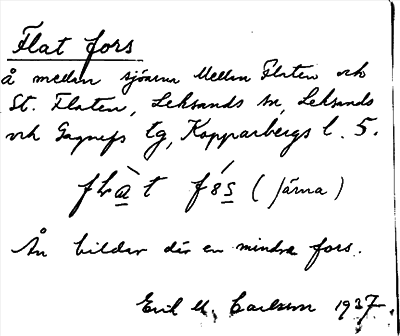 Flat fors
Å mellan sjöarna Mellan Flaten och
St. Flaten, Leksands sn, Leksands
och Gagnefs tg, Kopparbergs l. 5.
(Järna)
Ån bildar där en mindre fors.
Erik M. Carlsson 1937.